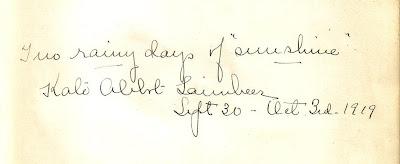 Two rainy days of "sunshine"
Kate Abbot
Sept 30 - Oct 3rd - 1919